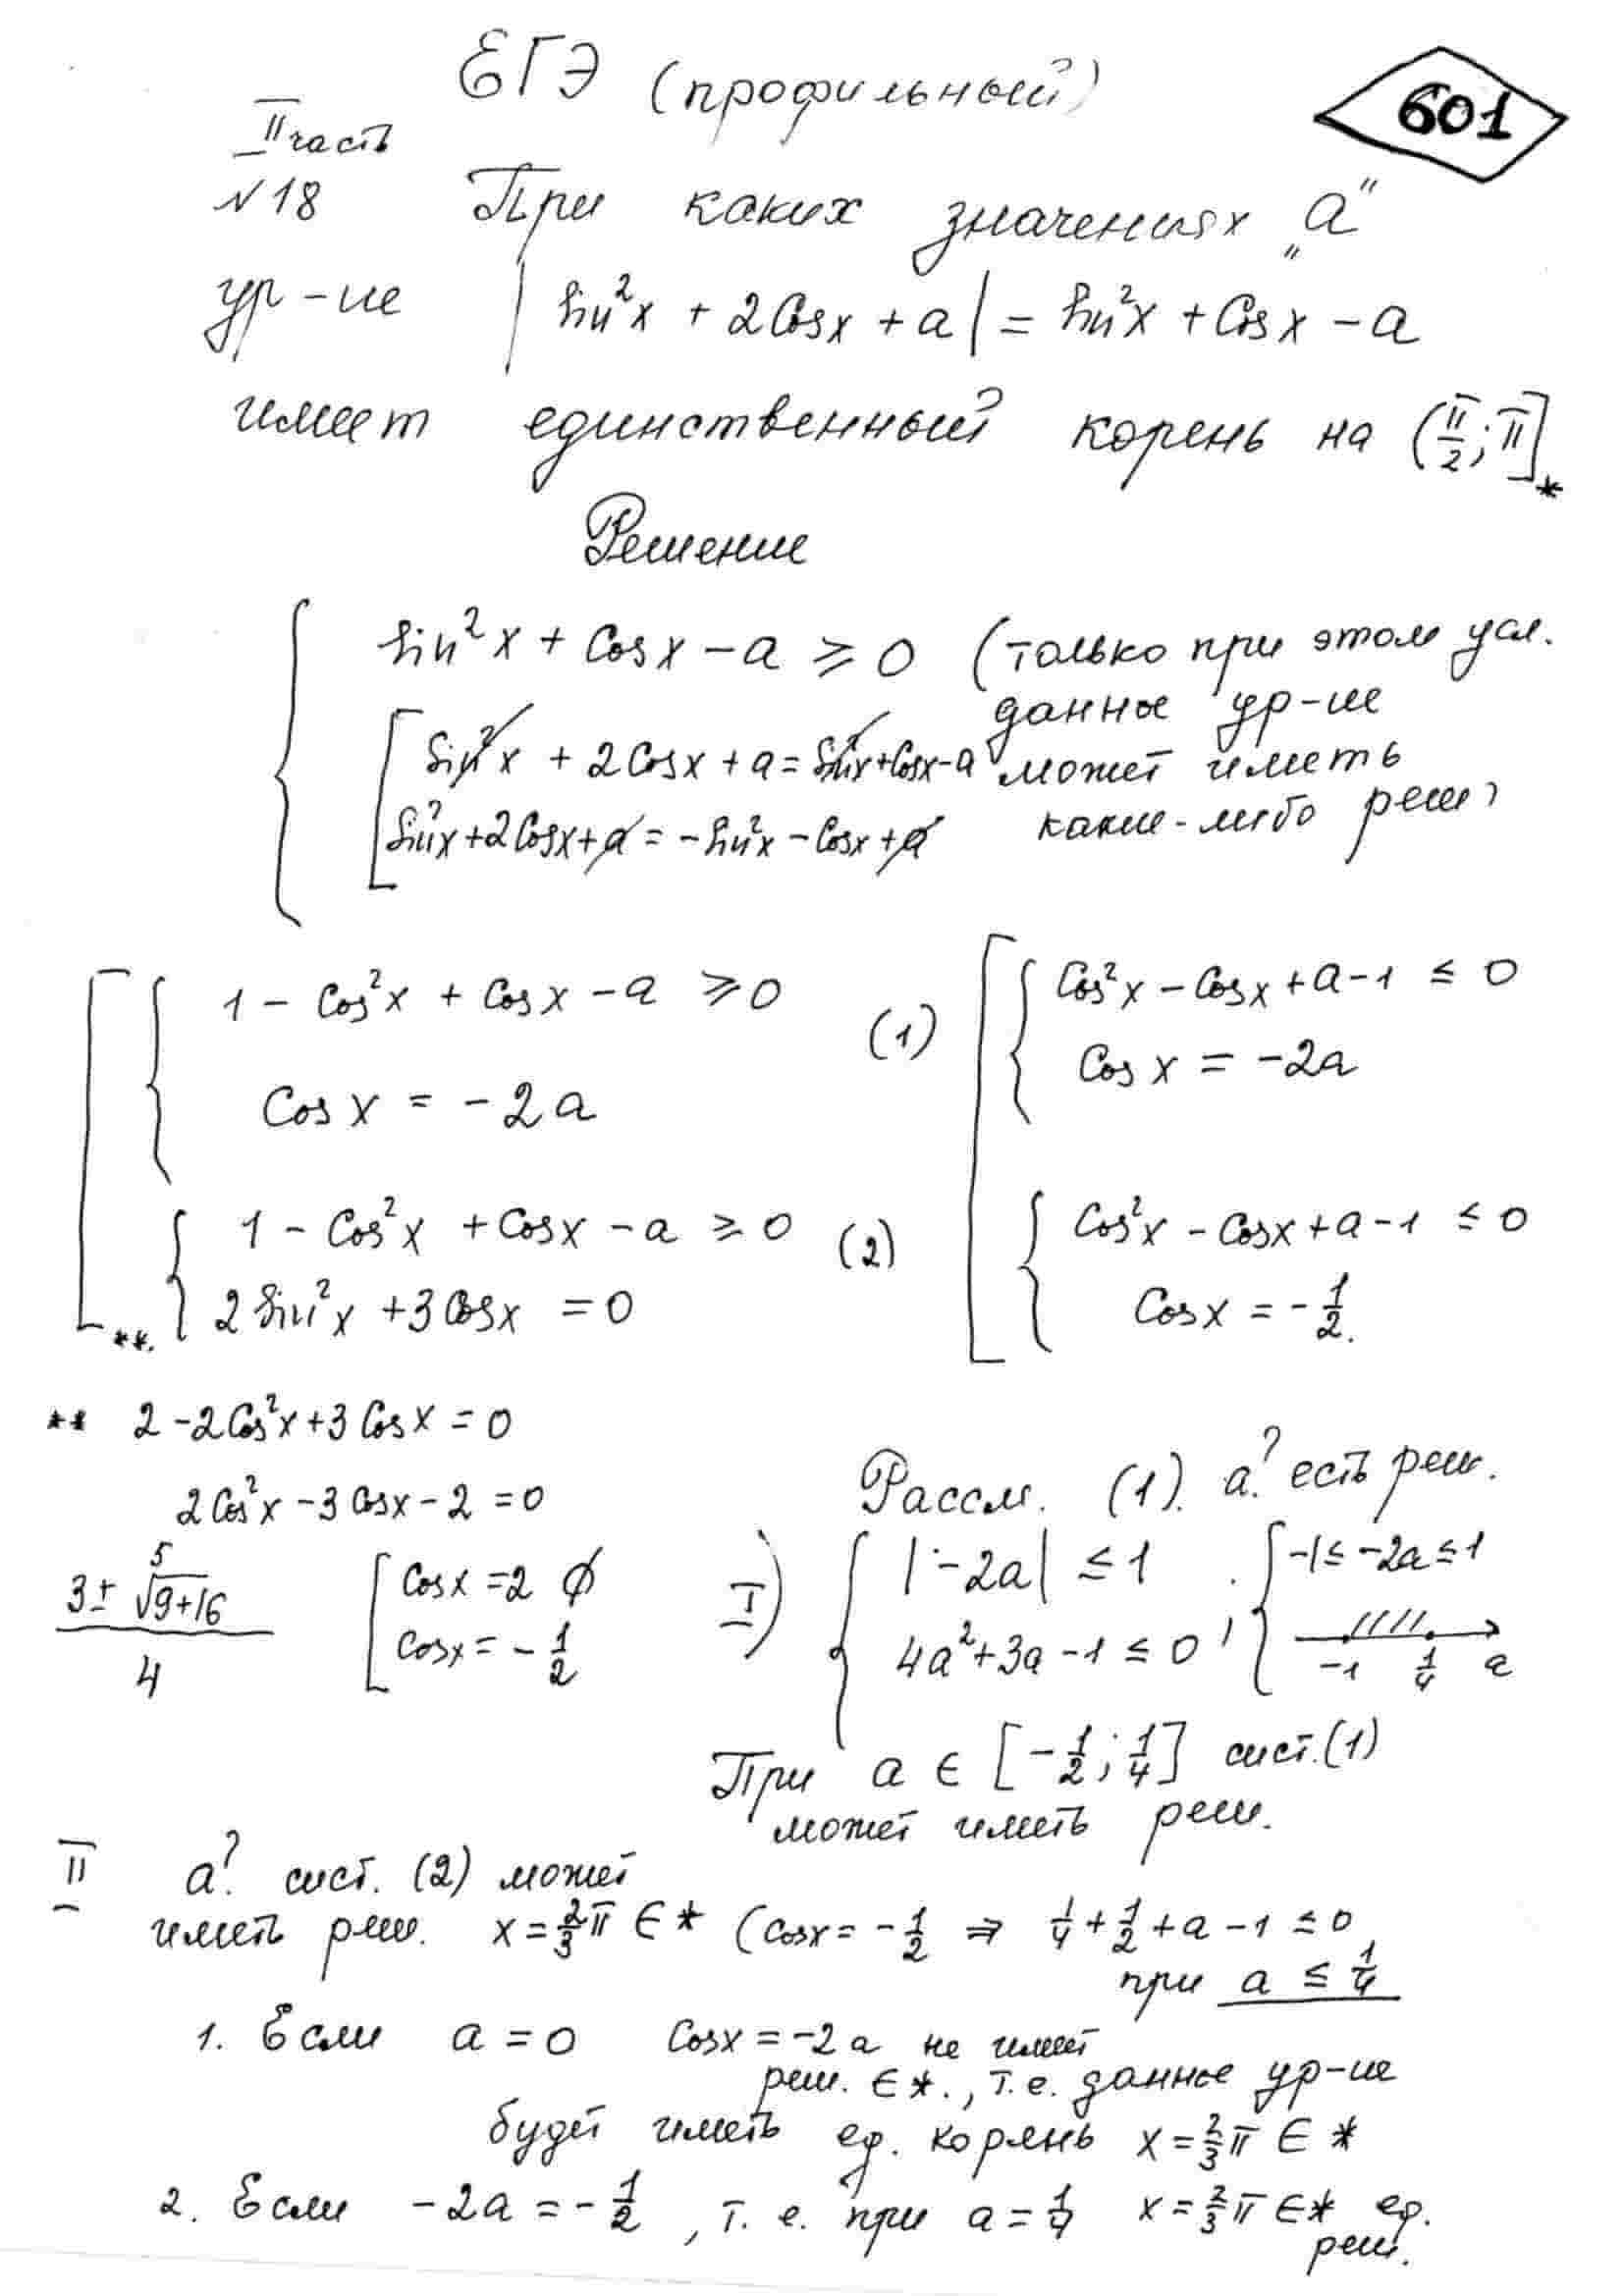 ЕГЭ (профильный)
601
II часть
№18 При каких значениях „a"
ур-ие |sin²x + 2Cosx + a| = sin²x + Cosx - a
имеет единственный корень на (π/2; π]*
Решение
{ sin²x + Cosx - a ≥ 0 (только при этом усл.
данное ур-ие
[ sin²x + 2Cosx + a = sin²x + Cosx - a может иметь
sin²x + 2Cosx + a = -sin²x - Cosx + a какие-либо реш)
[ { 1 - Cos²x + Cosx - a ≥ 0 (1) [ { Cos²x - Cosx + a - 1 ≤ 0
Cosx = -2a Cosx = -2a
{ 1 - Cos²x + Cosx - a ≥ 0 (2) { Cos²x - Cosx + a - 1 ≤ 0
**. 2Sin²x + 3Cosx = 0 Cosx = -1/2.
** 2 - 2Cos²x + 3Cosx = 0
2Cos²x - 3Cosx - 2 = 0
(3 ± √(9+16))/4 5 [ Cosx = 2 ∅
Cosx = -1/2
Рассм. (1). a? есть реш.
I) { |-2a| ≤ 1 ; { -1 ≤ -2a ≤ 1
4a² + 3a - 1 ≤ 0 -1 1/4 a
При a ∈ [-1/2; 1/4] сист.(1)
может иметь реш.
II a? сист. (2) может
иметь реш. x = 2/3 π ∈ * (Cosx = -1/2 ⇒ 1/4 + 1/2 + a - 1 ≤ 0
при a ≤ 1/4
1. Если a = 0 Cosx = -2a не имеет
реш. ∈ *., т.е. данное ур-ие
будет иметь ед. корень x = 2/3 π ∈ *
2. Если -2a = -1/2, т. е. при a = 1/4 x = 2/3 π ∈ * ед.
реш.